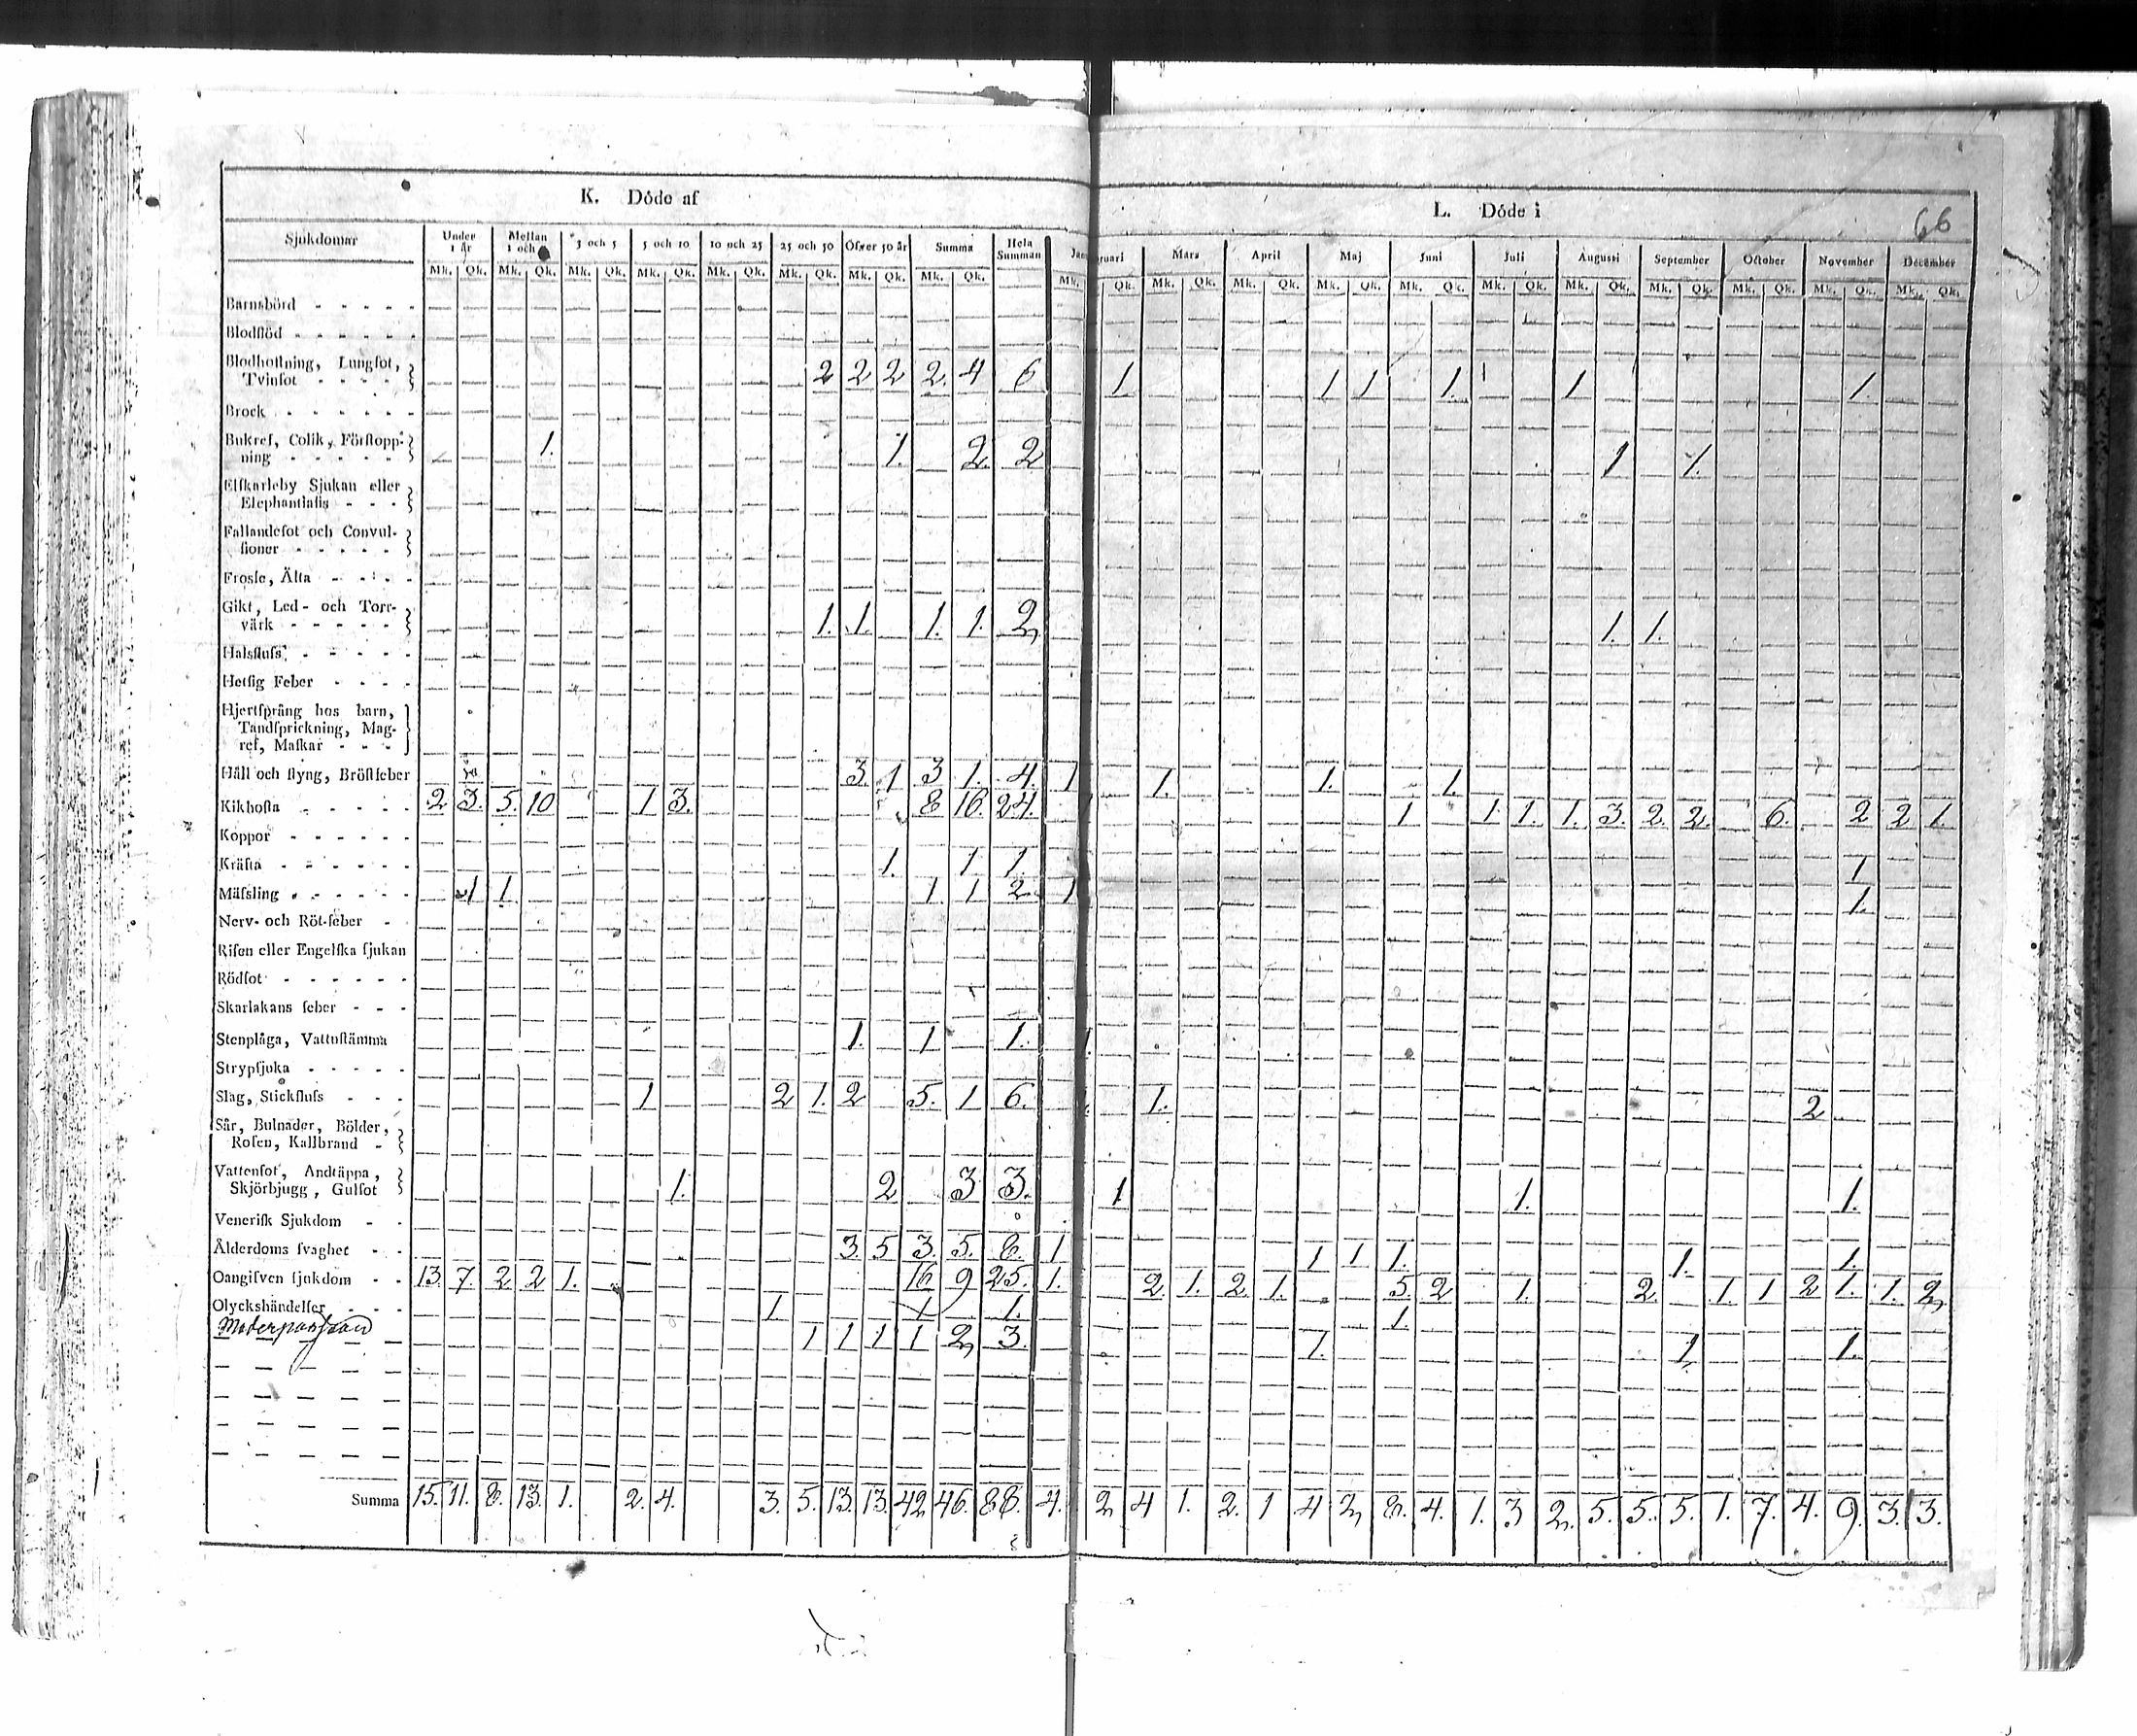 66
K. Döde af
L. Döde i
Sjukdomar Under 1 år Mellan 1 och 3 och 5 5 och 10 10 och 25 25 och 50 Öfver 50 år Summa Hela Summan Jan uari Mars April Maj Juni Juli Augusti September October November December
Mk. Qk. Mk. Qk. Mk. Qk. Mk. Qk. Mk. Qk. Mk. Qk. Mk. Qk. Mk. Qk. Mk. Qk. Mk. Qk. Mk. Qk. Mk. Qk. Mk. Qk. Mk. Qk. Mk. Qk. Mk. Qk. Mk. Qk. Mk. Qk. Mk. Qk.
Barnsbörd - - - - -
Blodflöd - - - - - -
Blodhostning, Lungsot,
Tvinsot - - - - 2 2 2 2. 4 6 1 1 1 1. 1 1 1.
Brock - - - - - -
Bukref, Colik, Förstopp-
ning - - - - - 1. 1. 2. 2 1 1.
Elfkarleby Sjukan eller
Elephantiasis - - -
Fallandesot och Convul-
sioner - - - - -
Frossa, Älta - - - -
Gikt, Led- och Torr-
värk - - - - - 1. 1. 1. 1. 2 1. 1.
Halsfluss - - - - -
Hetsig Feber - - - -
Hjertsprång hos barn,
Tandsprickning, Mag-
ref, Maskar - - -
Håll och styng, Bröstfeber 3. 1 3 1. 4. 1 1. 1. 1.
Kikhosta - - - - - 2 3. 5. 10 1 3. 8 16. 24. 1 1. 1. 1. 3. 2. 2. 6. 2 2 1.
Koppor - - - - - -
Kräfta - - - - - - 1. 1. 1. 1
Mässling - - - - - - 1 1. 1 1 2. 1 1.
Nerv- och Röt-feber -
Risen eller Engelska sjukan
Rödsot - - - - - -
Skarlakans feber - - -
Stenplåga, Vattustämma 1. 1 1. 1.
Strypsjuka - - - - -
Slag, Stickfluss - - - 1 2 1. 2 5. 1 6. 1. 1. 2
Sår, Bulnader, Bölder,
Rosen, Kallbrand -
Vattensot, Andtäppa,
Skjörbjugg, Gulsot 1. 2 3 3. 1 1. 1.
Venerisk Sjukdom - -
Ålderdoms svaghet - - 3. 5 3. 5. 8. 1 1 1 1. 1. 1.
Oangifven sjukdom - - 13. 7. 2 2 1. 16 9 25. 1. 2. 1. 2. 1. 5. 2 1. 2. 1. 1 2 1. 1. 2
Olyckshändelser - - - 1. 1 1. 1.
1 1 1 1 2 3. 1. 1. 1.
Summa 15. 11. 8. 13. 1. 2. 4. 3. 5. 13. 13. 42 46. 88. 4. 2 4 1. 2. 1 4 2 8. 4. 1. 3 2. 5. 5. 5. 1. 7. 4. 9. 3. 3.